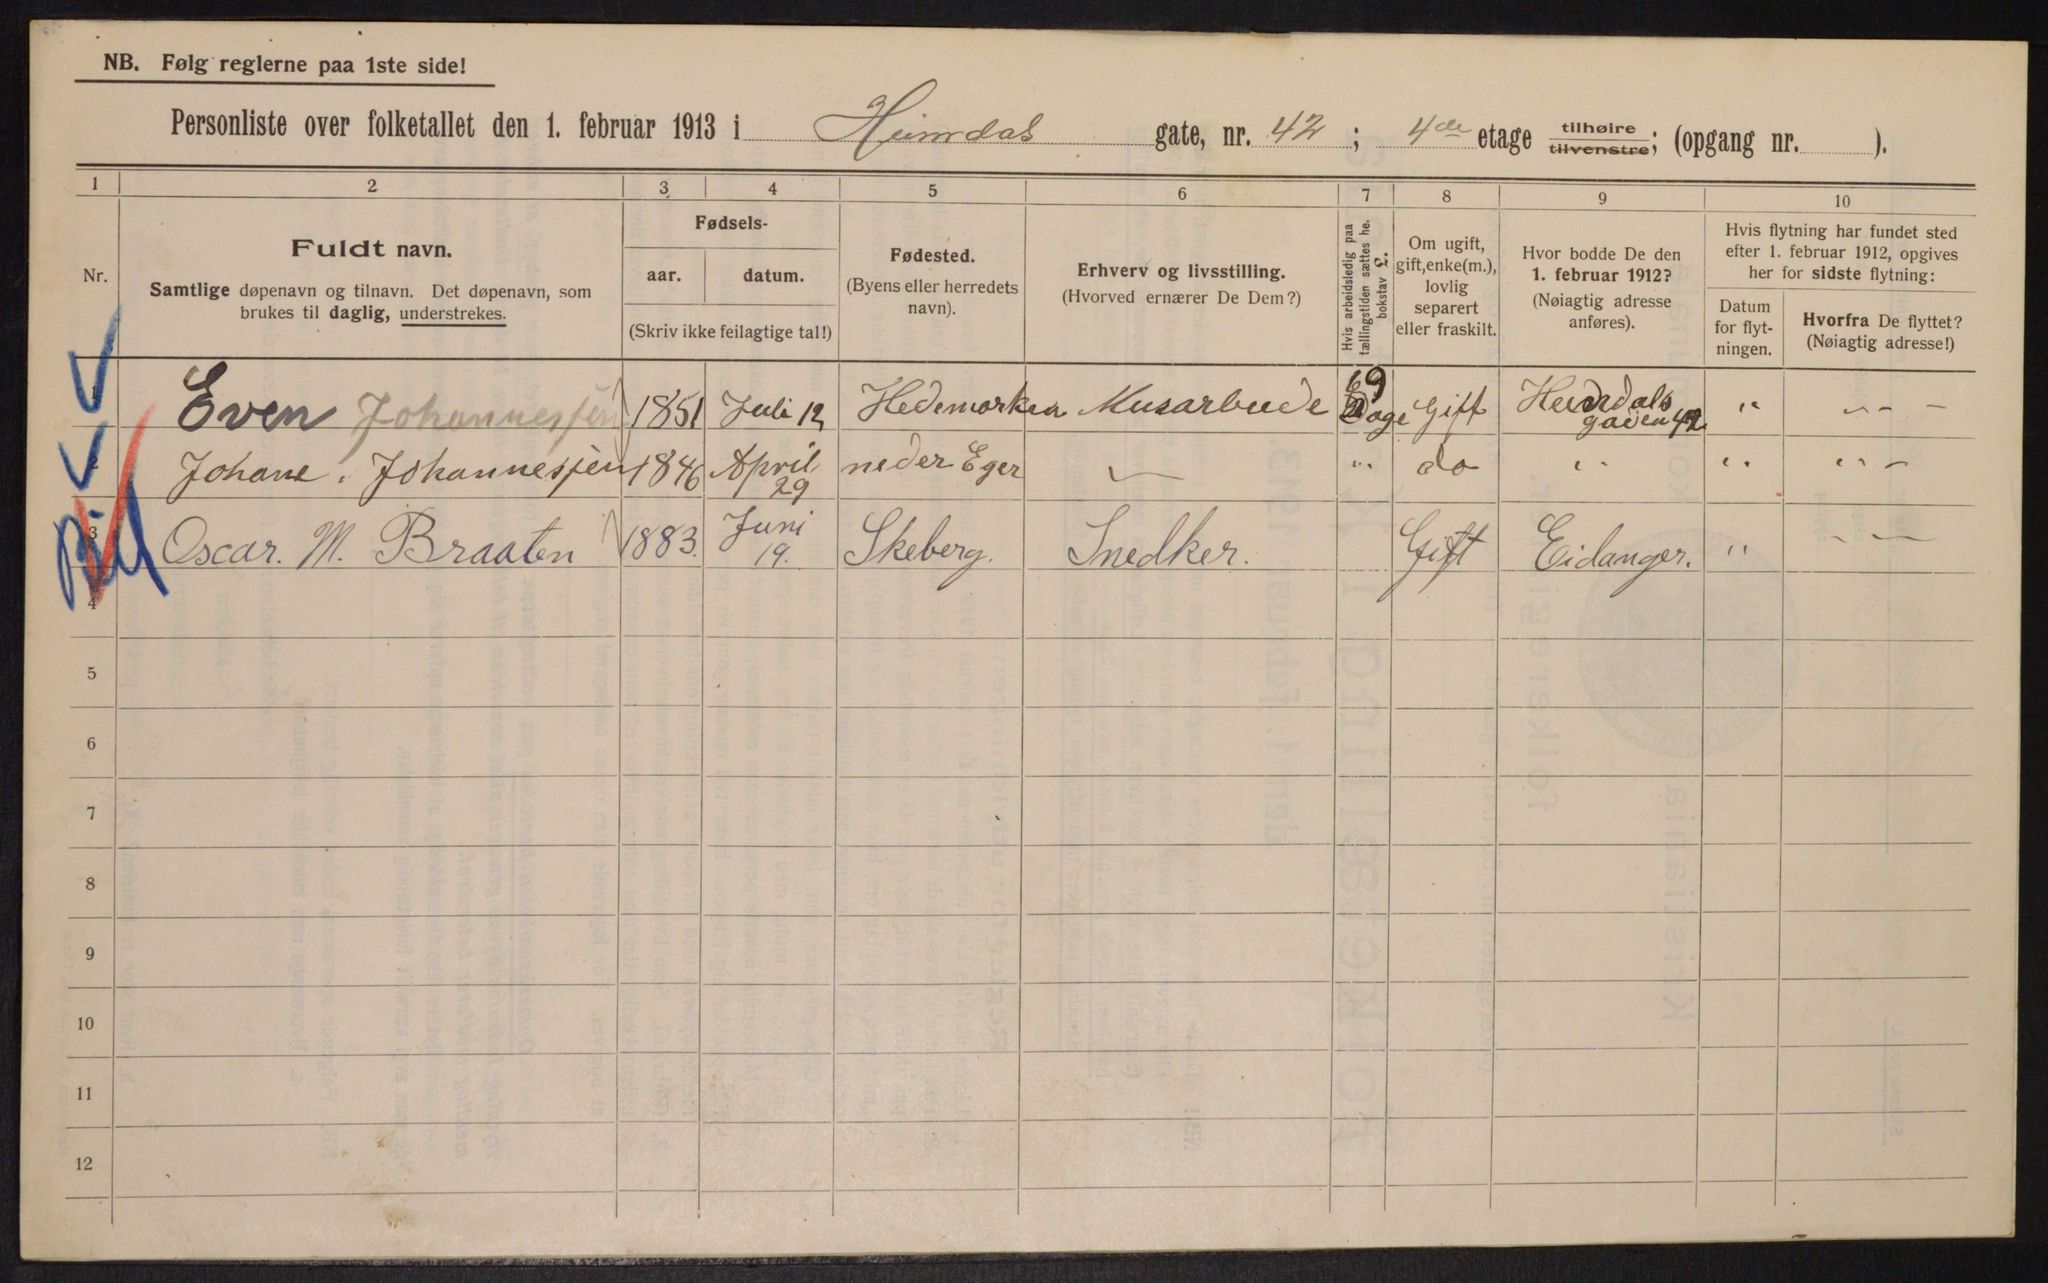 NB. Følg reglerne paa 1ste side!
Personliste over folketallet den 1. februar 1913 i Heimdals gate, nr. 42; 4de etage tilhøire tilvenstre; (opgang nr. ).
1 2 3 4 5 6 7 8 9 10
Nr.
Fuldt navn.
Samtlige døpenavn og tilnavn. Det døpenavn, som
brukes til daglig, understrekes.
Fødsels-
aar. datum.
(Skriv ikke feilagtige tal!)
Fødested.
(Byens eller herredets
navn).
Erhverv og livsstilling.
(Hvorved ernærer De Dem?)
Hvis arbeidsledig paa
tællingstiden sættes he.
bokstav L.
Om ugift,
gift, enke(m.),
lovlig
separert
eller fraskilt.
Hvor bodde De den
1. februar 1912?
(Nøiagtig adresse
anføres).
Hvis flytning har fundet sted
efter 1. februar 1912, opgives
her for sidste flytning:
Datum
for flyt-
ningen.
Hvorfra De flyttet?
(Nøiagtig adresse!)
1 Even Johannessen 1851 Juli 12 Hedemarken Murarbeide 69 Dage Gift Heimdals gaden 42 " " - -
2 Johane. Johannesjen 1846 April 29 neder Eger — " do " " " -
3 Oscar. M. Braaten 1883. Juni 19. Skeberg. Snedker. Gift Eidanger. " - " -
4
5
6
7
8
9
10
11
12